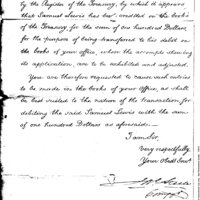 by the Register of the Treasury, by which it appears
that Samuel Lewis has been credited on the books
of the Treasury for the sum of one hundred Dollars
for the purpose of being transferred to his debit on
the books of your office, where the accompts shewing
its application, are to be exhibited and adjusted.
You are therefore requested to cause such entries
to be made in the books of your office, as shall
be best suited to the nature of the transaction for
debiting the said Samuel Lewis with the sum
of one hundred Dollars as aforesaid:—
I am Sir,
very respectfully
Your Obdt Servt
Comp